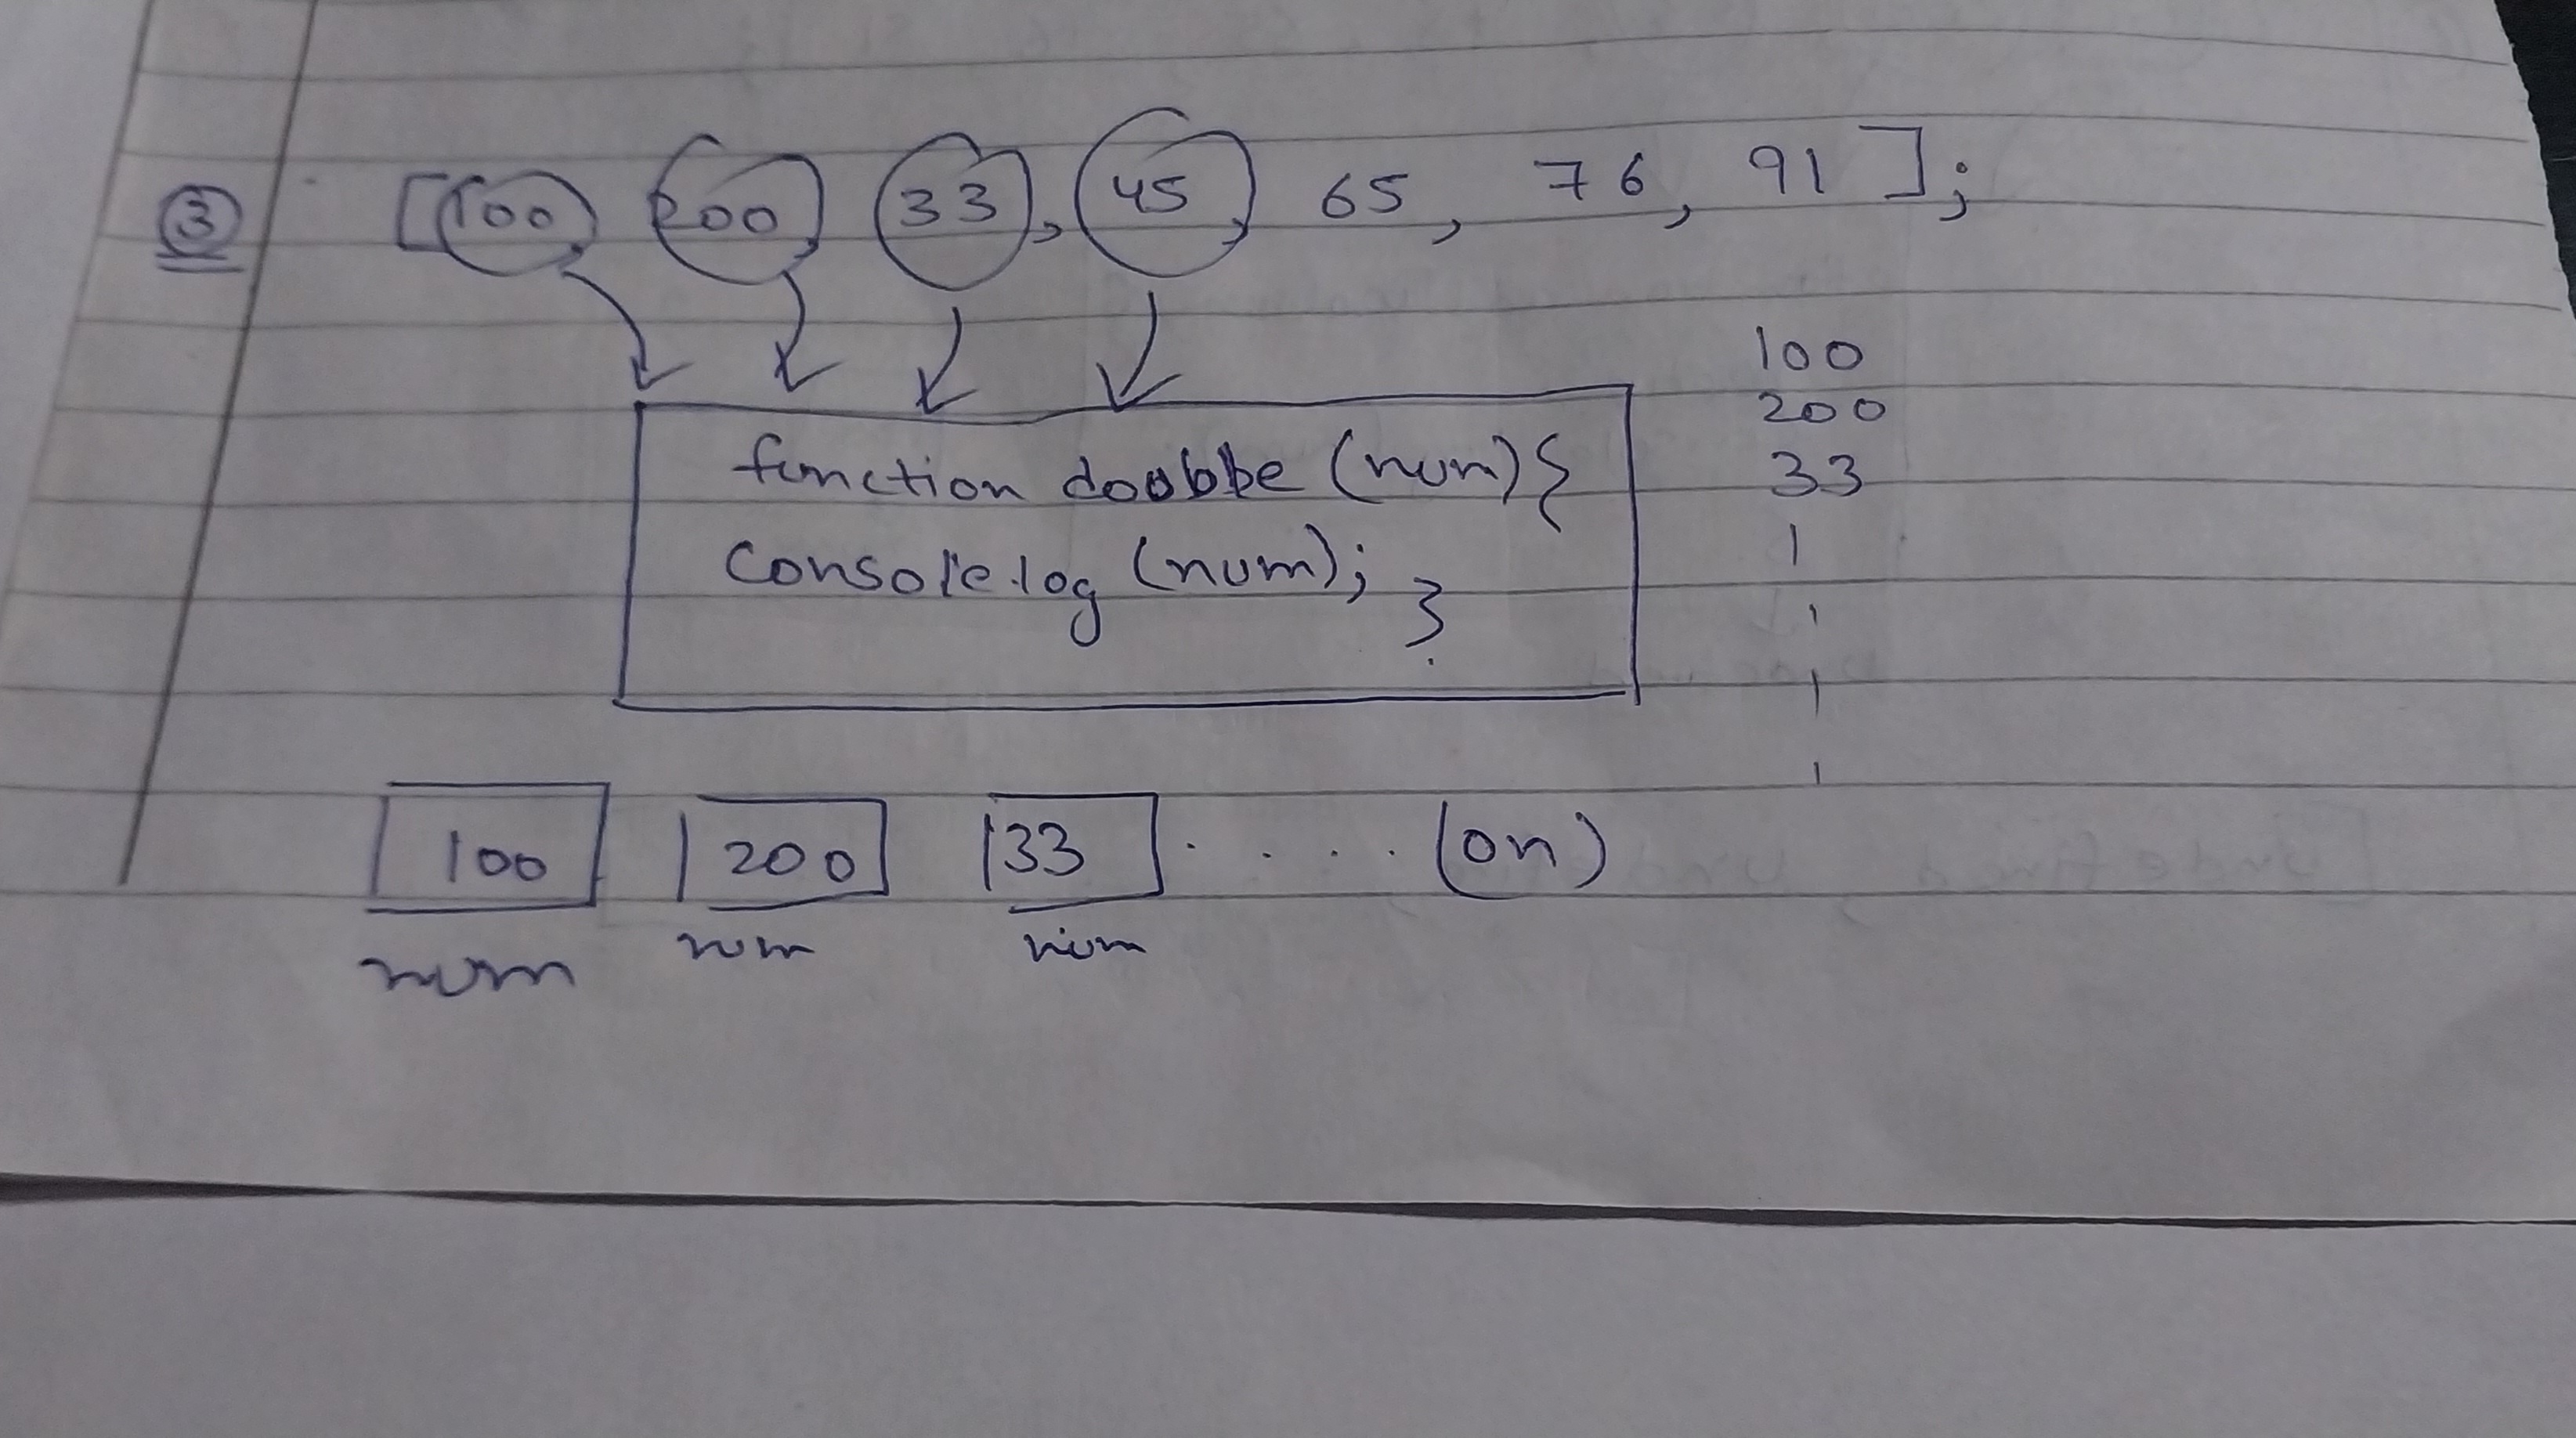 ③ [100, 200, 33, 45, 65, 76, 91];
function doobbe (num){
console.log (num); }
100
200
33
100 200 33 .... (on)
num num num